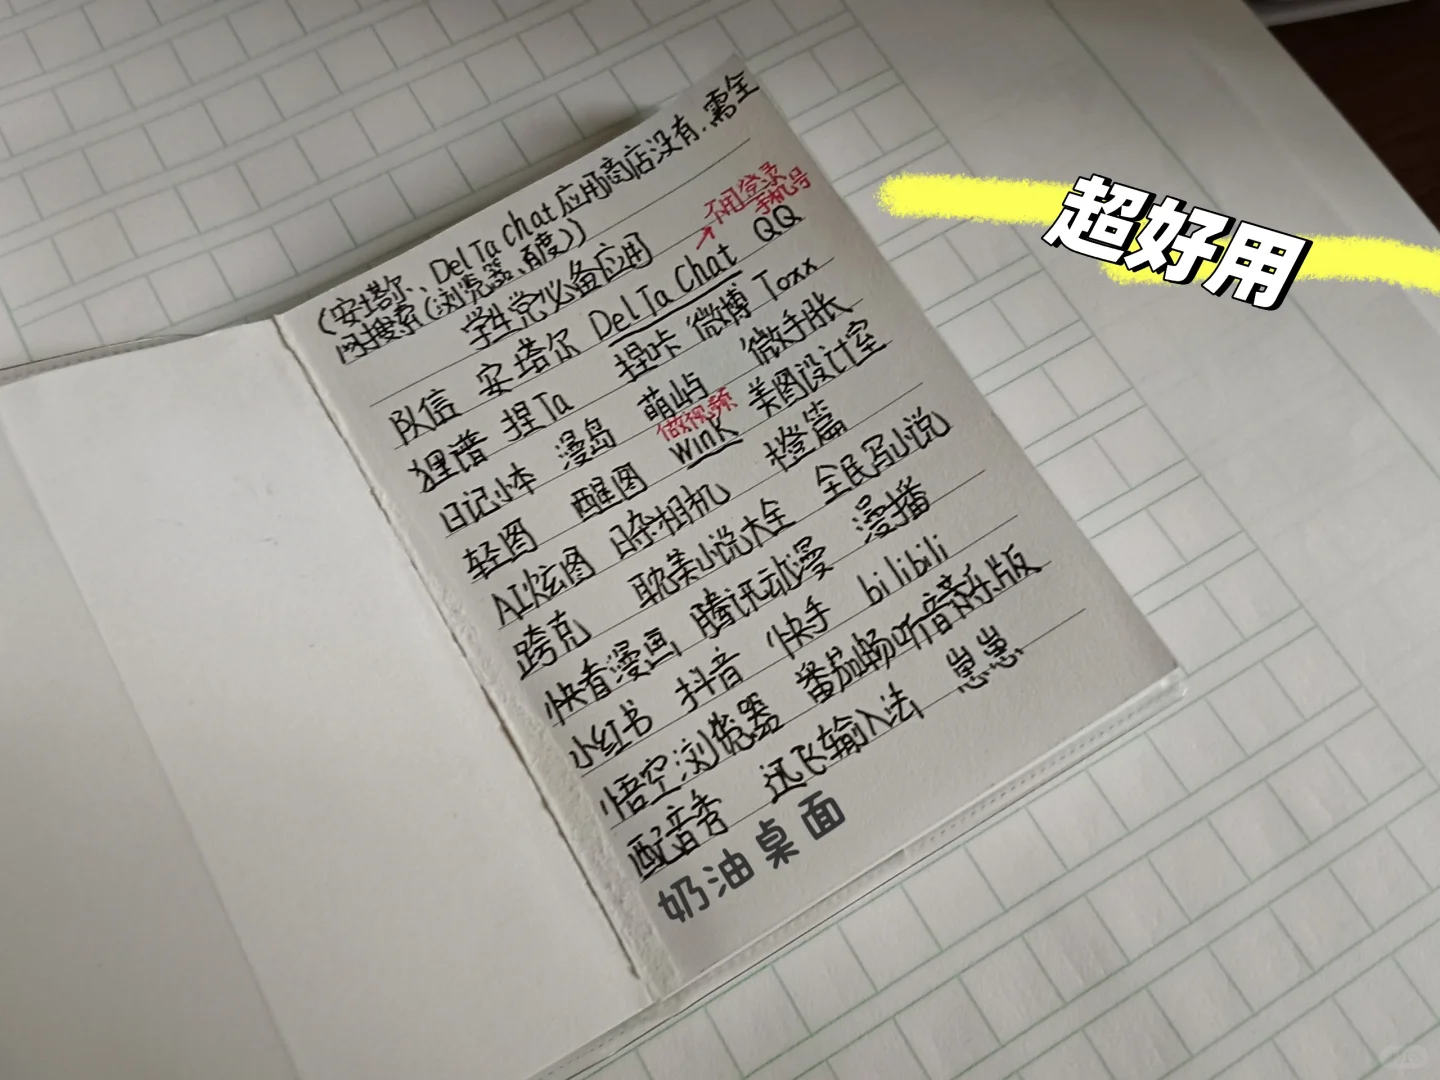 (安塔尔、DelTa Chat应用商店没有.需全
网搜索(浏览器、百度))
学生党必备应用
不用登录
手机号
队信 安塔尔 DelTa Chat QQ
狸谱 捏Ta 捏咔 微博 Toxx
日记小本 漫岛 萌屿 微手账
做视频
轻图 醒图 wink 美图设计室
AI炫图 日杂相机 橙篇
跨克 耽美小说大全 全民写小说
快看漫画 腾讯动漫 漫播
小红书 抖音 快手 bilibili
悟空浏览器 番茄畅听音乐版
配音秀 迅飞输入法 崽崽
奶油桌面
超好用